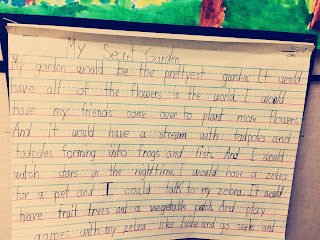 My Secret Garden
My garden would be the prettyest garden. It would
have all of the flowers in the world. I would
have my friends come over to plant more flowers.
And it would have a stream with tadpoles and
tadpoles forming into frogs and fish. And I would
watch stars in the nighttime. I would have a zebra
for a pet and I could talk to my zebra. It would
have fruit trees and a vegetable patch. And play
games with my zebra like hide and go seek and